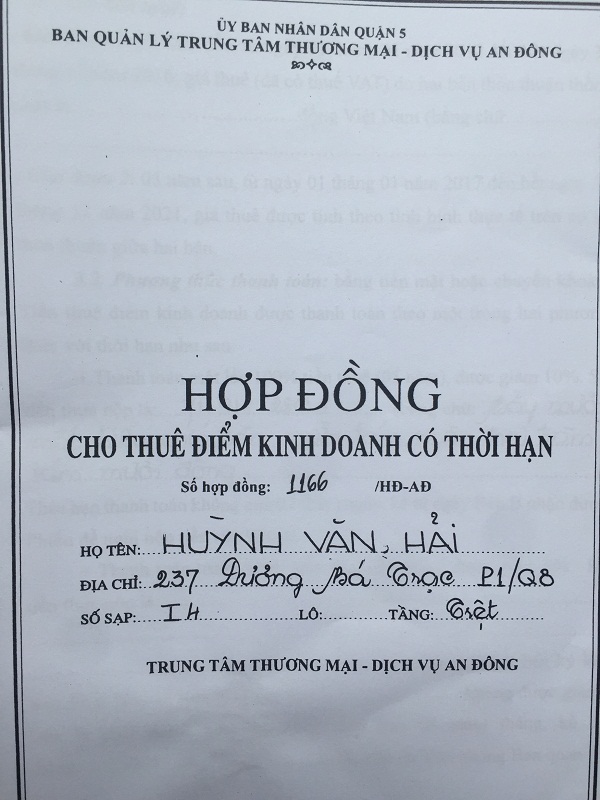 ỦY BAN NHÂN DÂN QUẬN 5
BAN QUẢN LÝ TRUNG TÂM THƯƠNG MẠI - DỊCH VỤ AN ĐÔNG
HỢP ĐỒNG
CHO THUÊ ĐIỂM KINH DOANH CÓ THỜI HẠN
Số hợp đồng: 1166 /HĐ-AĐ
HỌ TÊN: HUỲNH VĂN HẢI
ĐỊA CHỈ: 237 Dương Bá Trạc P1/Q8
SỐ SẠP: I4 LÔ: TẦNG: Trệt
TRUNG TÂM THƯƠNG MẠI - DỊCH VỤ AN ĐÔNG